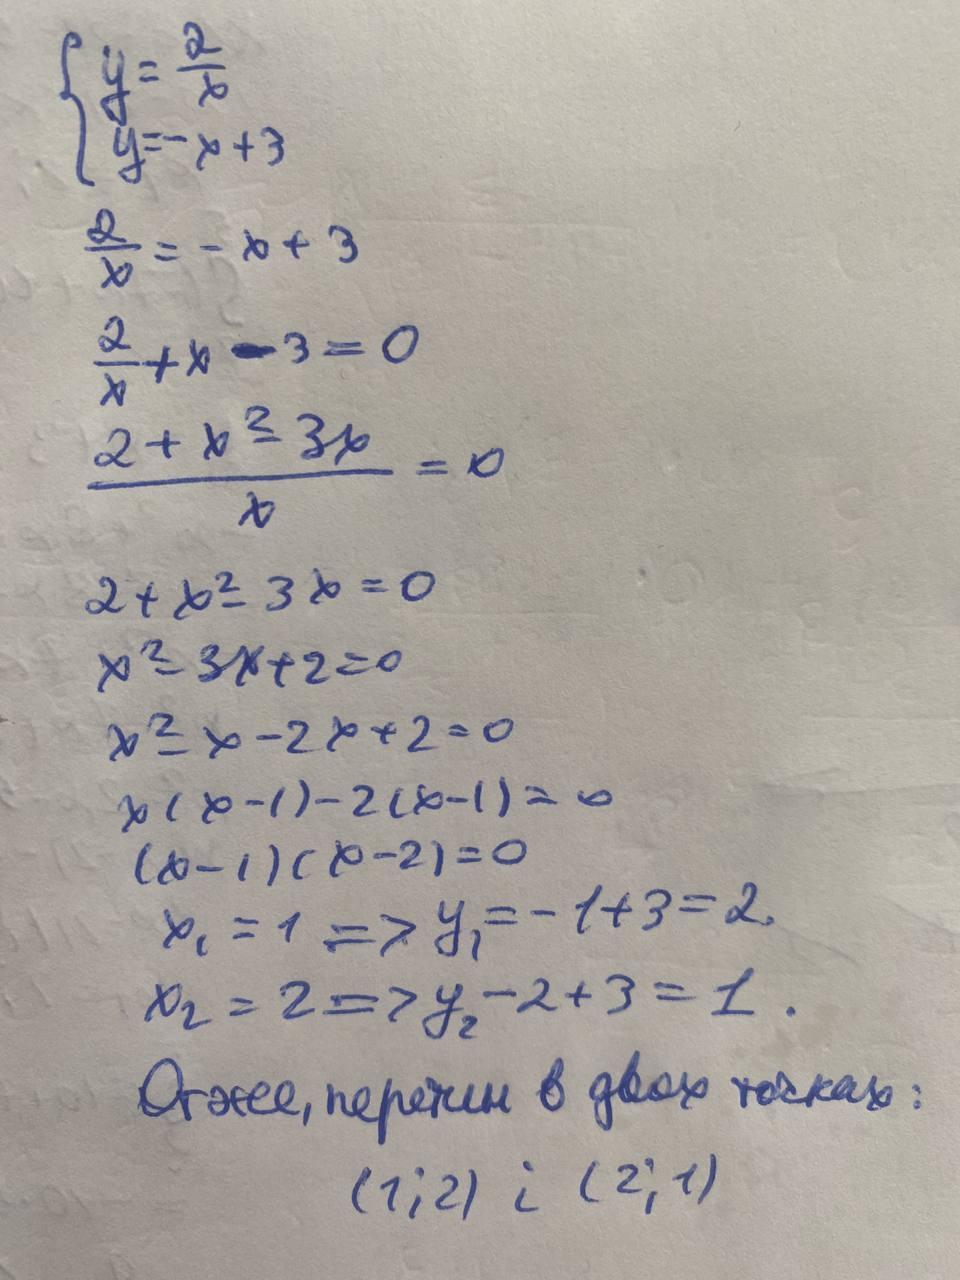 { y = 2/x
y = -x + 3
2/x = -x + 3
2/x + x - 3 = 0
(2 + x² - 3x)/x = 0
2 + x² - 3x = 0
x² - 3x + 2 = 0
x² - x - 2x + 2 = 0
x(x-1) - 2(x-1) = 0
(x-1)(x-2) = 0
x₁ = 1 => y₁ = -1+3 = 2.
x₂ = 2 => y₂ -2+3 = 1.
Отже, перетин в двох точках:
(1;2) і (2;1)